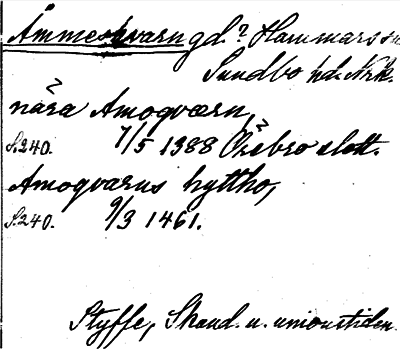 Åmmeskvarn gd? Hammars sn
Sundbo hd. Nrk.
nära Amogværn,
S.240. 7/5 1388 Örebro slott.
Amoqvarns hyttho,
S.240. 9/3 1461.
Styffe, Skand. u. unionstiden.